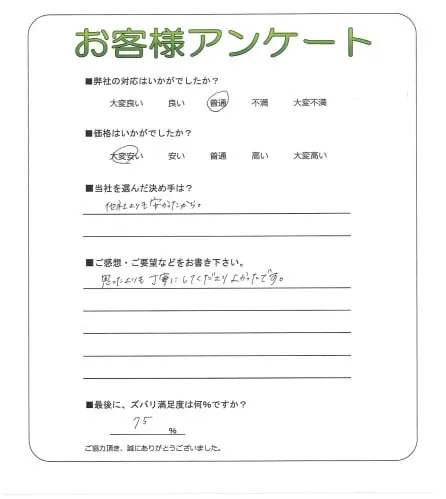 お客様アンケート
■弊社の対応はいかがでしたか？
大変良い 良い 普通 不満 大変不満
■価格はいかがでしたか？
大変安い 安い 普通 高い 大変高い
■当社を選んだ決め手は？
他社よりも安かったから。
■ご感想・ご要望などをお書き下さい。
思ったよりも丁寧にしてくださりよかったです。
■最後に、ズバリ満足度は何％ですか？
75
％
ご協力頂き、誠にありがとうございました。